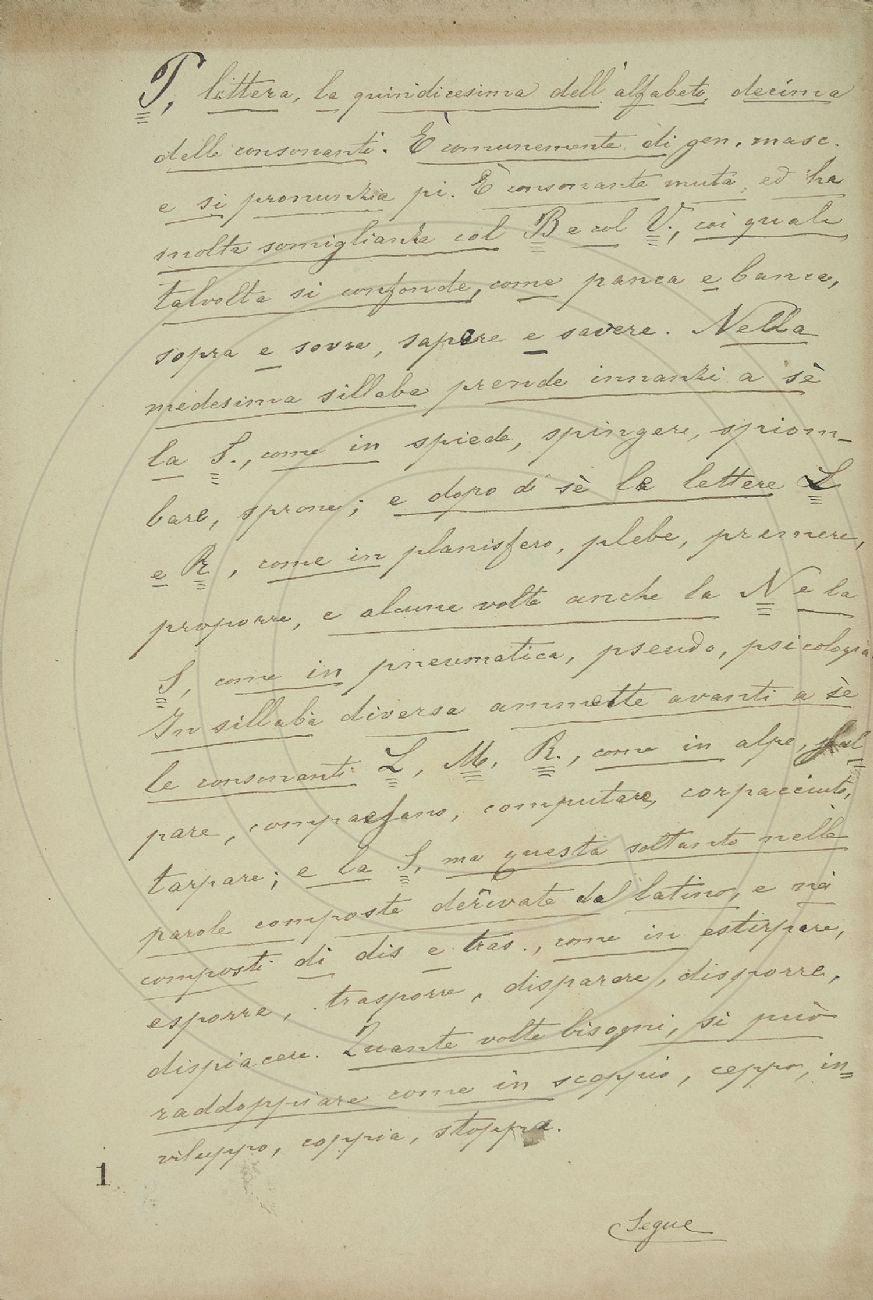 P, lettera, la quindicesima dell'alfabeto, decima
delle consonanti. È comunemente di gen. masc.
e si pronunzia pi. È consonante muta, ed ha
molta somiglianza col B e col V, coi quali
talvolta si confonde, come panca e banca,
sopra e sovra, sapere e savere. Nella
medesima sillaba prende innanzi a sè
la S., come in spiede, spingere, spiom-
bare, sprone; e dopo di sè le lettere L
e R, come in planisfero, plebe, premere,
proporre, e alcune volte anche la N e la
S, come in pneumatica, pseudo, psicologia.
In sillaba diversa ammette avanti a sè
le consonanti L, M, R., come in alpe, pal
pare, compaesano, computare, corpacciuto,
tarpare; e la S, ma questa soltanto nelle
parole composte derivate dal latino, e nei
composti di dis e tras., come in estirpare,
esporre, trasporre, disparere, disporre,
dispiacere. Quante volte bisogni, si può
raddoppiare come in scoppio, ceppo, in=
viluppo, coppia, stoppa.
1
Segue